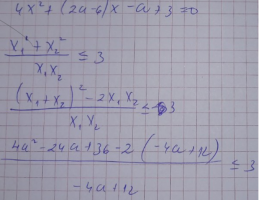 4x² + (2a-6)x - a + 3 = 0
(x₁² + x₂²) / (x₁x₂) ≤ 3
((x₁+x₂)² - 2x₁x₂) / (x₁x₂) ≤ 3
(4a² - 24a + 36 - 2(-4a+12)) / (-4a+12) ≤ 3